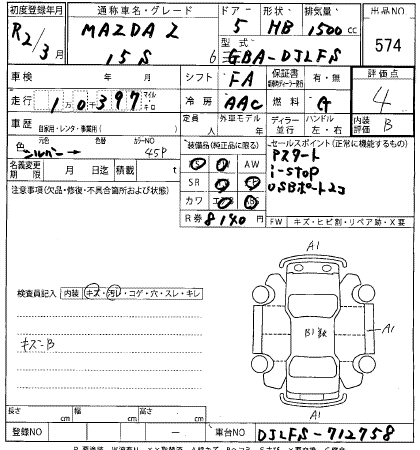 初度登録年月 通称車名・グレード ドア 形状 排気量 出品NO
R2/3月 MAZDA2 15S 5 HB 1500cc 574
型式 6 GBA-DJLFS
車検 年 月 シフト FA 保証書 有・無 評価点 4
走行 10千397 マイル キロ 冷房 AAC 燃料 G
車歴 自家用・レンタ・事業用( ) 定員 人 外車モデル 年 ディーラー 並行 ハンドル 左・右 内装 B
色 元色 シルバー 色替 カラーNO 45P
装備品(純正品に限る) セールスポイント(正常に機能するもの)
名義変更期限 月 日迄 積載 t
AW
SR
カワ
Pスタート
i-stop
USBポート2コ
R券 8140円
注意事項(欠品・修復・不具合箇所および状態)
FW キズ・ヒビ割・リペア跡・X要
検査員記入 内装 キズ・汚レ・コゲ・穴・スレ・キレ
キズニB
A1
A1
A1
長さ cm 幅 cm 高さ cm
登録NO — 車台NO DJLFS-712758